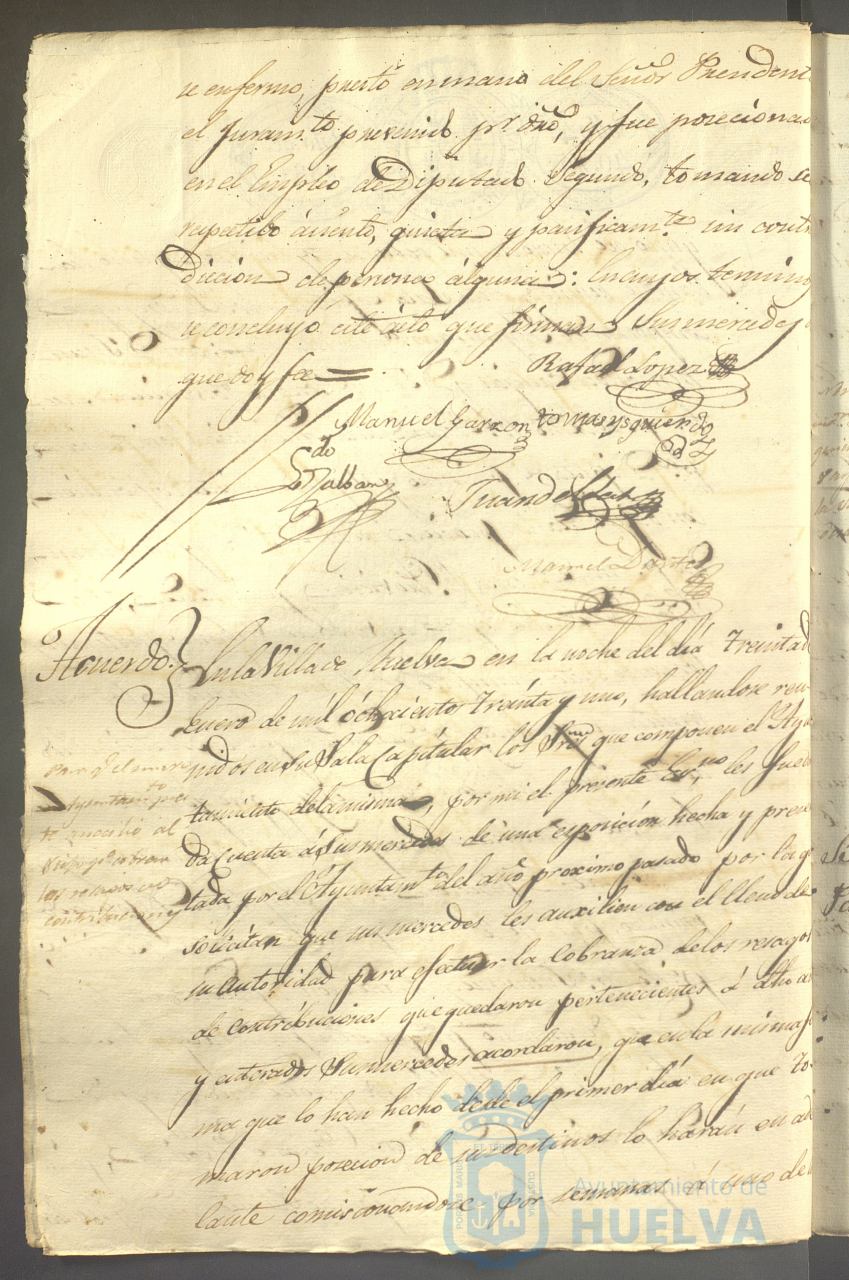 se enfermo, puesto en mano del Señor President
el Juramto prevenido pr. dro, y fue posecionad
en el Empleo de Diputado Segundo, tomando se
repetido asiento, quieta y pasificamte sin contr
dicion de persona alguna: En cuyos termino
se concluyó este acto que firman Sus mercedes
que doy fee =
Rafael Lopez
Manuel Garzon tomas ysquierdo
Juan de
Manuel
Acuerdo. En la Villa de Huelva en la noche del día treinta d
Enero de mil ochocientos treinta y uno, hallandose reu-
nidos en su Sala Capitular los Sres que componen el Ayun
tamiento de la misma, por mi el presente Esno les fue
da cuenta á Sus mercedes de una exposición hecha y presen
tada por el Ayuntamto del año proximo pasado por la q
solicitan que sus mercedes les auxilien con el lleno de
su autoridad para efectuar la cobranza de los resagos
de contribuciones que quedaron pertenecientes á dho a
y enterados Sus mercedes acordaron, que en la misma fo
ma que lo han hecho desde el primer día en que to-
maron posecion de sus destinos lo harán en ad
lante comisionandose por semanas á uno de
Para q. el nuevo
Ayuntamto
auxilio al
contribuciones
Ayuntamiento de
HUELVA